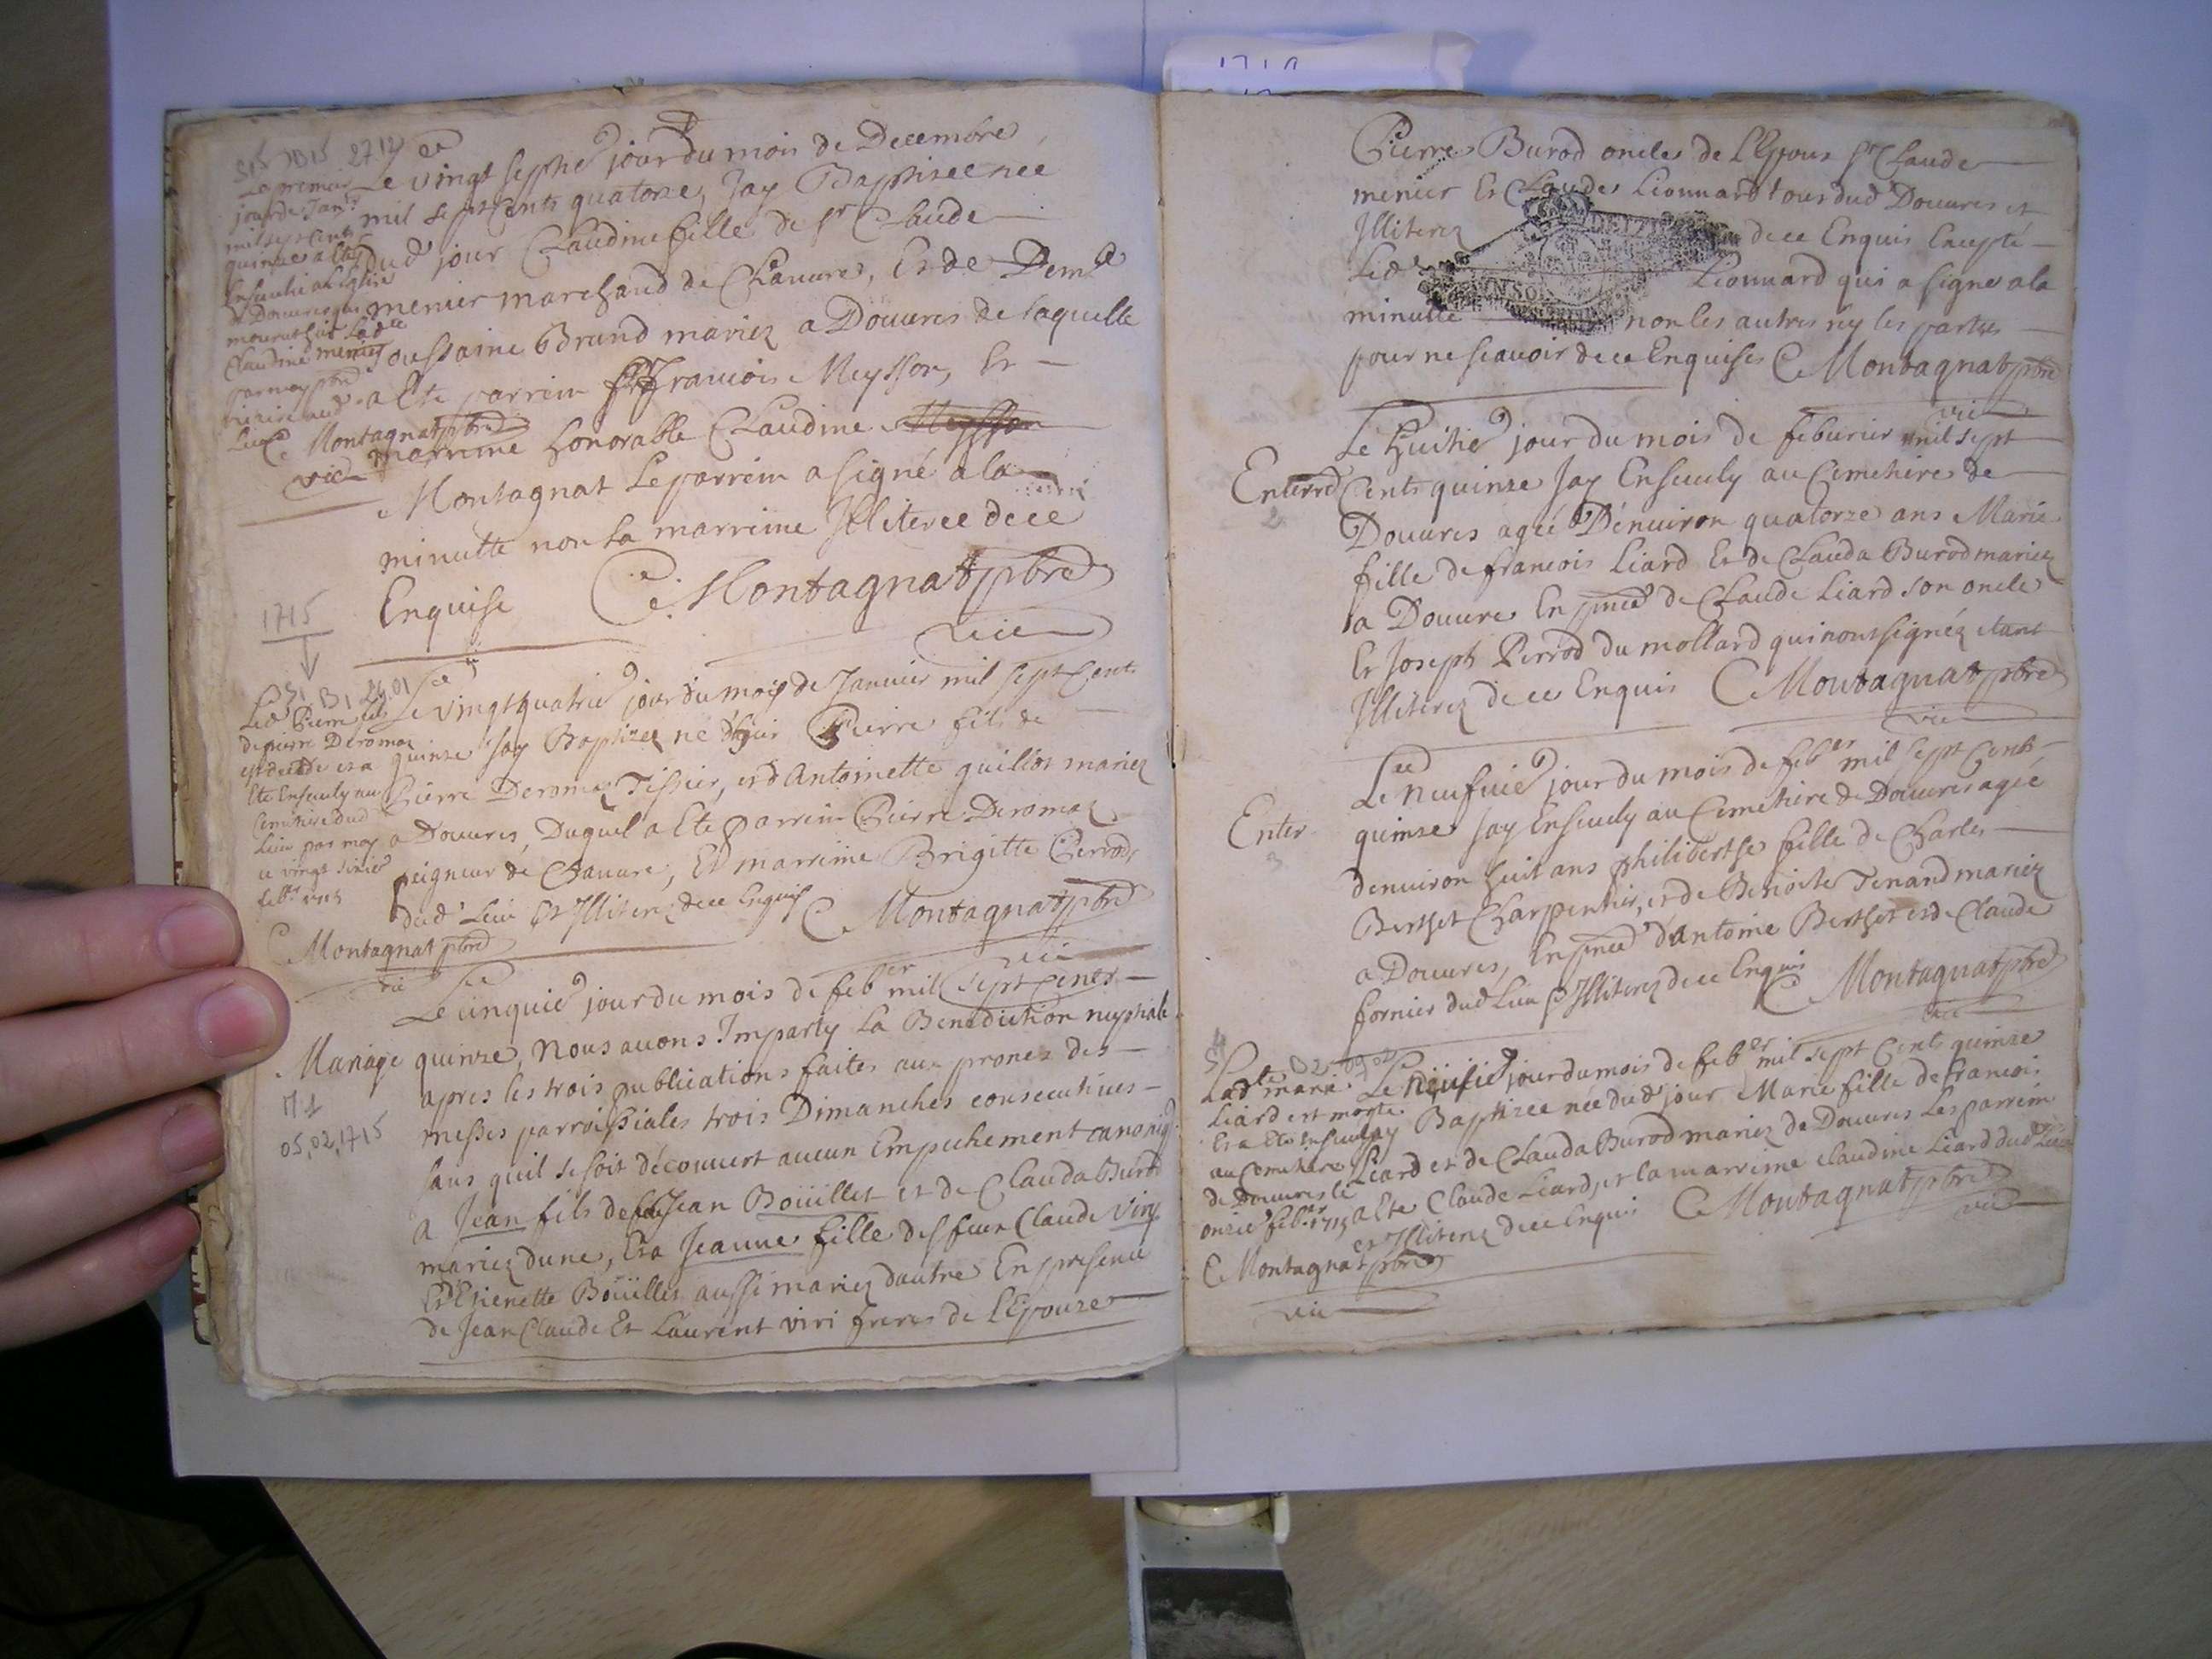 S15 B15 2712
Le premier
jour de Janr
mil sept Cents
quinze a ete
Enseulie a l'Eglise
de Douures
Ladte
Claudine menier
par moy pbre
vicaire aud
Lieu C Montagnat pbre
vic
Le vingt septie jour du mois de Decembre
mil sept Cents quatorze, Jay Baptizee née
dud jour Claudine fille de sr Claude
menier marchand de Chanure, Et de Demle
Toussaine Brund mariez a Douures de laquelle
a Ete parrein sr Francois Meysson, Et
marrine honorable Claudine Meysson
Montagnat Le parrein a signé a la
minutte non la marreine Illiteree de ce
Enquise C. Montagnat pbre
vic
1715
S1 B1 24.01
Led Pierre fils
de pierre Deromaz
est decede et a
Ete Enseuly au
Cemetiere dud
Lieu par moy
ce vingt sixie
febr 1715
C Montagnat pbre
vic
Le vingtquatrie jour du mois de Januier mil sept Cents
quinze Jay Baptizez né Pierre fils de
Pierre Deromaz Tissier, et d Antoinette guillot mariez
a Douures, Duquel a Ete Parrein Pierre Deromaz
peigneur de Chanure, Et marrine Brigitte Perrod,
dud Lieu Et Illiterez de ce Enquis C Montagnat pbre
vic
Mariage
M1
05.02.1715
Le cinquie jour du mois de feber mil sept Cents
quinze, Nous auons Imparty La Benediction nuptiale
apres les trois publications faites aux prones des
messes parroissiales trois Dimanches consecutiues
sans quil se soit découuert aucun Empechement canoniq
a Jean fils de feu Jean Boüillet et de Clauda Burod
mariez dune, Et a Jeanne fille de feu Claude Viry
Et Etienette Boüillet aussi mariez dautre En presence
de Jean Claude Et Laurent viri freres de l'Epouze
Pierre Burod oncle de l'Epoux sr Claude
menier Et Claude Lionnard tous dud Douures et
Illiterez de ce Enquis Excepté
Led Lionnard qui a signé a la
minutte non les autres ny les parties
pour ne scauoir de ce Enquises C Montagnat pbre
vic
Enterre
2
Le huitie jour du mois de feburier mil sept
Cents quinze Jay Enseuly au Cemetiere de
Douures agée D'enuiron quatorze ans Marie
fille de francois Liard Et de Clauda Burod mariez
a Douure En pnce de Claude Liard son oncle
Et Joseph Perrod du mollard qui nont signéz etant
Illiterez de ce Enquis C Montagnat pbre
vic
Enter
3
Le Neufuie jour du mois de feber mil sept Cents
quinze Jay Enseuly au Cemetiere de Douures agée
denuiron huit ans philibertse fille de Charles
Berthet Charpentier, et de Benoite Tenand mariez
a Douures, En pnce d'Antoine Berthet et de Claude
fornier dud Lieu Et Illiterez de ce Enquis C Montagnat pbre
vic
S4 B2 09.02
Ladte marie
Liard est morte
Et a Ete Enseuly
au Cemetiere
de Douures le
onzie feber 1715
C Montagnat pbre
vic
Le Neufie jour du mois de feber mil sept Cents quinze
Jay Baptizee née dud jour Marie fille de francois
Liard et de Clauda Burod mariez de Douures Le parrein
a Ete Claude Liard, et la marrine claudine Liard dud Lieu
et Illiterez de ce Enquis C Montagnat pbre
vic